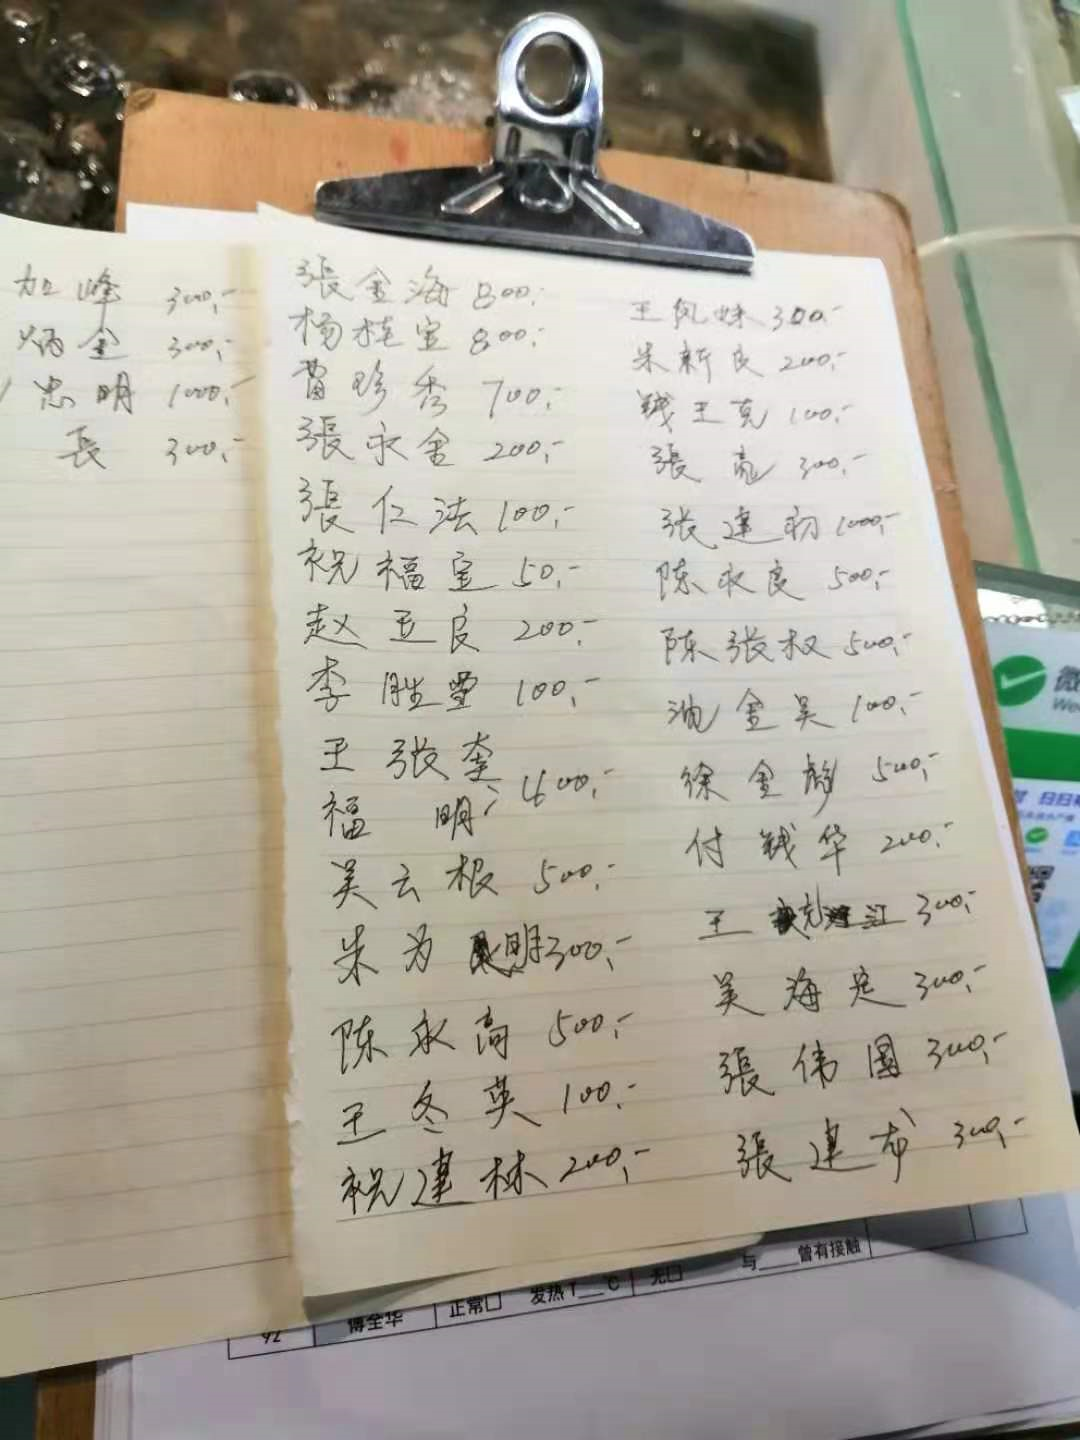 加峰 300,-
炳金 300,-
忠明 1000,-
長 300,-
張金海 800,-
杨桂宝 800,-
曹珍秀 700,-
張永金 200,-
張仁法 100,-
祝福宝 50,-
赵五良 200,-
李胜 100,-
王张奎
福明 400,-
吴云根 500,-
朱为明 300,-
陈永高 500,-
王冬英 100,-
祝建林 200,-
王凤妹 300,-
朱新良 200,-
钱王克 100,-
張亮 300,-
张建初 1000,-
陈永良 500,-
陈张权 500,-
金吴 100,-
徐金彪 500,-
付钱华 200,-
王 江 300,-
吴海定 300,-
張伟國 300,-
張建龙 300,-
92 傅全华 正常□ 发热T___℃ 无□ 与____曾有接触
微
We